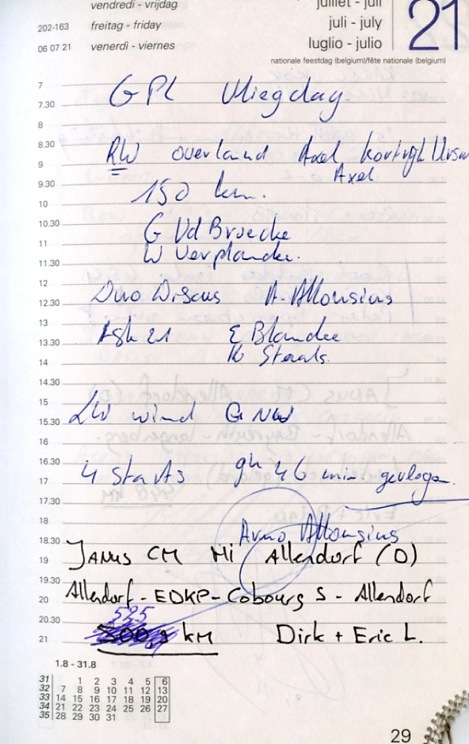 vendredi - vrijdag juillet - juli
202-163 freitag - friday juli - july 21
06 07 21 venerdì - viernes luglio - julio
nationale feestdag (belgium)/fête nationale (belgium)
7
7.30 GPL Vliegdag.
8
8.30 RW overland Axel Kortrijk Ursel
9 Axel
9.30 150 km.
10
10.30 G Vd Broecke
11 W Verplancke.
11.30
12 Duo Discus A. Allonsius
12.30
13 Ask 21 E Blandee
13.30 W Staals.
14
14.30
15 LW wind G NW
15.30
16
16.30 4 starts 9h 46 min gevlogen.
17
17.30
18 Arno Allonsius
18.30
19 JANUS CM Mi Allendorf (D)
19.30
20 Allendorf - EDKP - Cobourg S - Allendorf
20.30 535
21 km Dirk + Eric L.
1.8 - 31.8
31 1 2 3 4 5 6
32 7 8 9 10 11 12 13
33 14 15 16 17 18 19 20
34 21 22 23 24 25 26 27
35 28 29 30 31
29